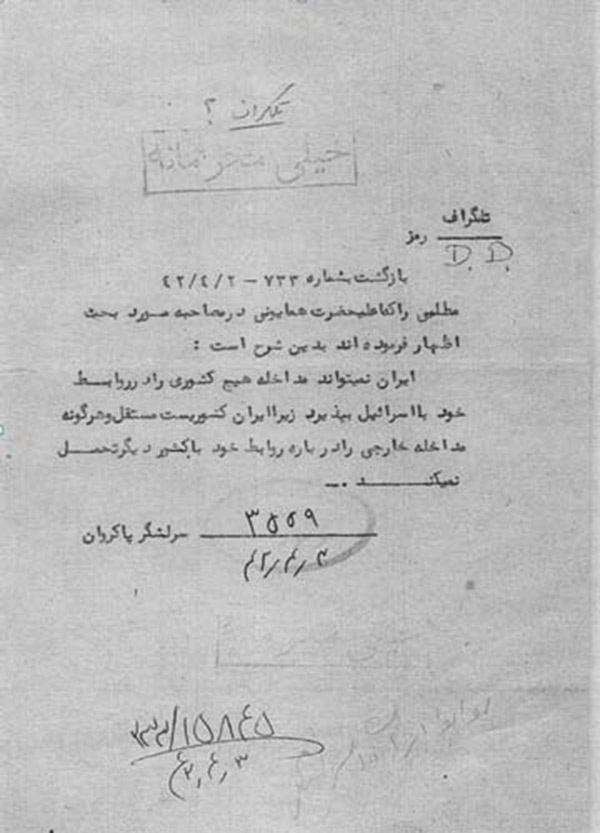 تلگراف ؟
خیلی محرمانه
تلگراف
رمز
D. D.
بازگشت بشماره ۷۳۳ - ۴۲/۴/۲
مطلبی راکه اعلیحضرت همایونی درمصاحبه مورد بحث
اظهار فرموده اند بدین شرح است :
ایران نمیتواند مداخله هیچ کشوری رادر روابط
خود بااسرائیل بپذیرد زیراایران کشوریست مستقل وهرگونه
مداخله خارجی رادرباره روابط خود باکشور دیگرتحمل
نمیکند .ـ
سرلشگر پاکروان
۳۵۵۹
۴۲٫۴٫۳
۳۳۲/۱۵۸۴۵
۴۲٫۴٫۳